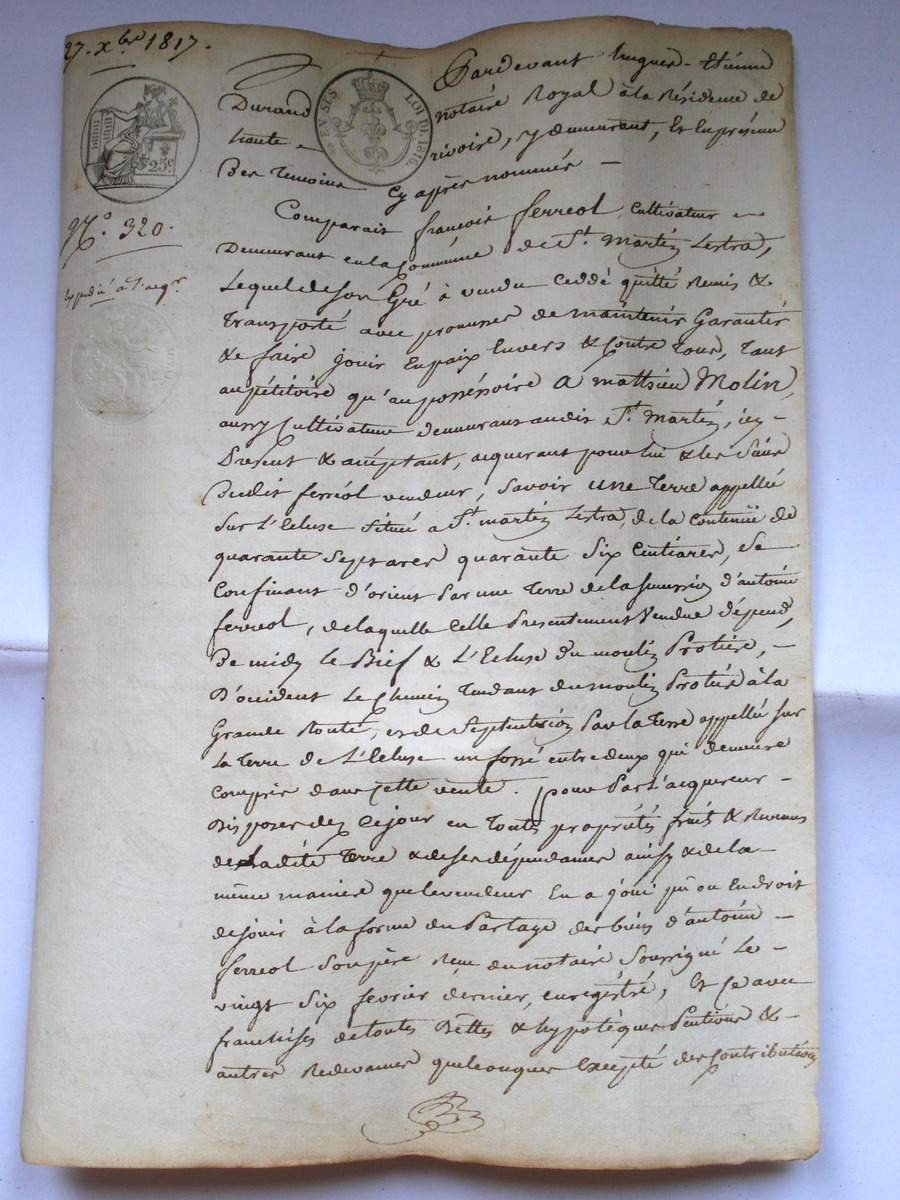 27. xbre 1817.
Pardevant hugues-Etiénne
Durand notaire Royal à la Résidence de
haute-rivoire, y demeurant, Et En présence
Des Temoins Cy après nommés —
25 c
EN SUS
LOI DE 1816.
N.° 320.
Comparait françois ferreol, Cultivateur
Demeurant en la Commune de St. Martin Lestra,
Lequel de son Gré à vendu Ceddé quitté Remis &
Transporté avec promesse de maintenir Garantir
& faire jouir En paix Envers & Contre Tous, Tant
au pétitoire qu'au possessoire A mathieu Molin,
aussy Cultivateur demeurant audit St. Martin, icy
Présent & acceptant, acquerant pour lui & les Siens
Dudit ferréol vendeur, Savoir une Terre appellée
Sur L'Ecluse Située a St. martin Lestra, de la Contenüe de
quarante Sept ares quarante Six Centiares, Se
Confinant d'orient Par une Terre de la succession d'antoine
ferreol, de laquelle Celle Presentement Vendue dépend,
De midy le Bief & L'Ecluse du moulin Protiere, —
D'occident Le Chemin Tendant du moulin Protiere à la
Grande Route, et de Septentrion Par la Terre appellée sur
La Terre de L'Ecluse un fossé entre deux qui demeure
Compris dans Cette vente. Pour Par L'acquereur
Disposer dez Ce jour en Toute propriétés fruits & Revenus
de Ladite Terre & de ses dépendances ainsy & de la
même maniere que le vendeur En a joui pû ou En droit
de jouir à la forme du Partage des biens d'antoine
ferreol Son père Reçu du notaire Soussigné Le
vingt Six fevrier dernier, enregistré, Et Ce avec
franchises de toutes Dettes & hypotèques Pentions &
autres Redevances quelconques Excepté des Contributions